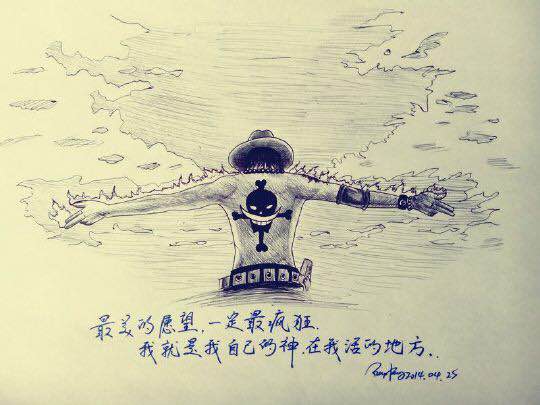 最美的愿望、一定最疯狂、
我就是我自己的神、在我活的地方..
2014.04.25